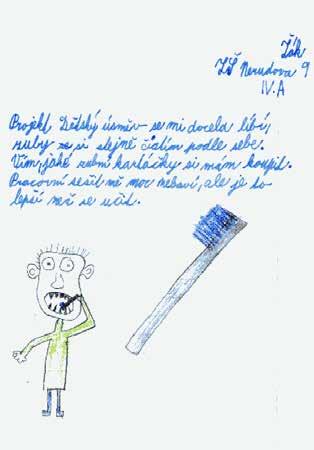 Žák
ZŠ Nerudova 9
IV.A
Projekt Dětský úsměv se mi docela líbí,
zuby si stejně čistím podle sebe.
Vím, jaké zubní kartáčky si mám koupit.
Pracovní sešit mě moc nebaví, ale je to
lepší než se učit.